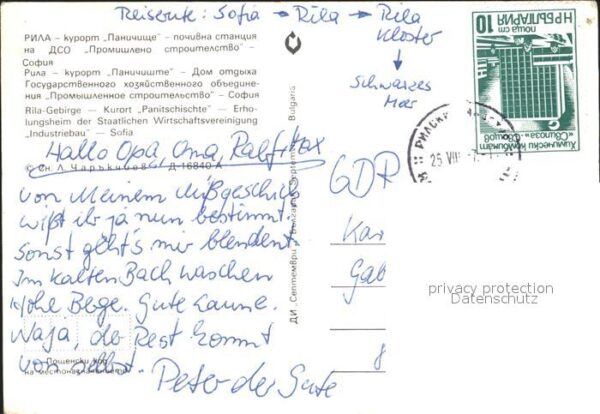 Reiseroute: Sofia → Rila → Rila
Kloster
↓
Schwarzes
Meer
РИЛА – курорт "Паничище" – почивна станция
на ДСО "Промишлено строителство" –
София
Рила – курорт "Паничиште" – Дом отдыха
Государственного хозяйственного объедине-
ния "Промышленное строительство" – София
Rila-Gebirge – Kurort "Panitschischte" – Erho-
lungsheim der Staatlichen Wirtschaftsvereinigung
"Industriebau" – Sofia
Hallo Opa, Oma, Ralf, Max
Д-16840-А
von Meinem Mißgeschick
wißt ihr ja nun bestimmt.
Sonst geht's mir blendent.
Im kalten Bach waschen
Hohe Berge. Gute Laune.
Naja, der Rest kommt
von selbst.
Peter der Gute
Пощенски код
на местоназначението
ДИ "Септември"
Bulgaria
НР БЪЛГАРИЯ
поща ст 10
Химически комбинат
"Свилоза" – Свищов
25 VIII
GDR
Kar
Gab
8
privacy protection
Datenschutz